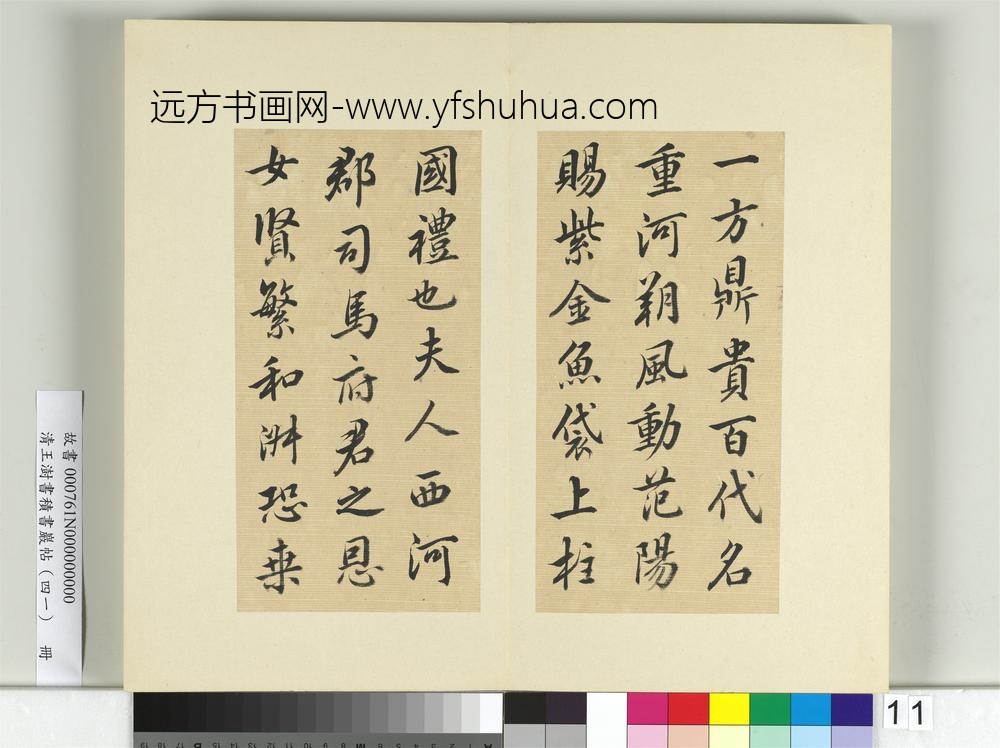 远方书画网-www.yfshuhua.com
一方鼎貴百代名
重河朔風動范陽
賜紫金魚袋上柱
國禮也夫人西河
郡司馬府君之恩
女賢繁和淋恐乗
故書 000761N000000000
清王澍書積書巖帖(四一) 冊
11